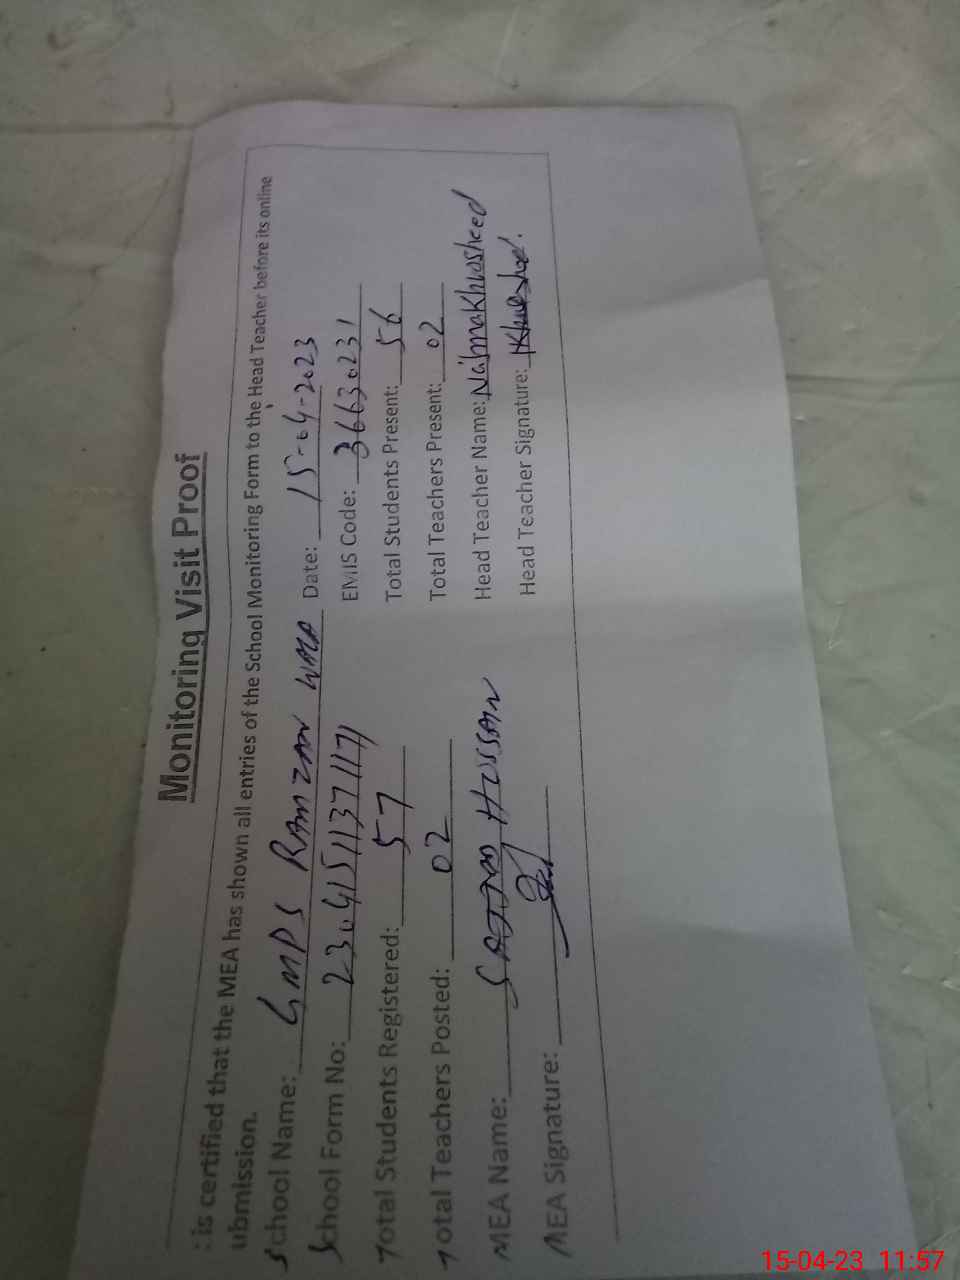 Monitoring Visit Proof
is certified that the MEA has shown all entries of the School Monitoring Form to the Head Teacher before its online
ubmission.
School Name: GMPS RAMZAN WALA Date: 15-04-2023
School Form No: 23041511371171 EMIS Code: 36630231
Total Students Registered: 57 Total Students Present: 56
Total Teachers Posted: 02 Total Teachers Present: 02
MEA Name: SAJJAD HUSSAIN Head Teacher Name: Najma Khursheed
MEA Signature: Head Teacher Signature: Khursheed.
15-04-23 11:57